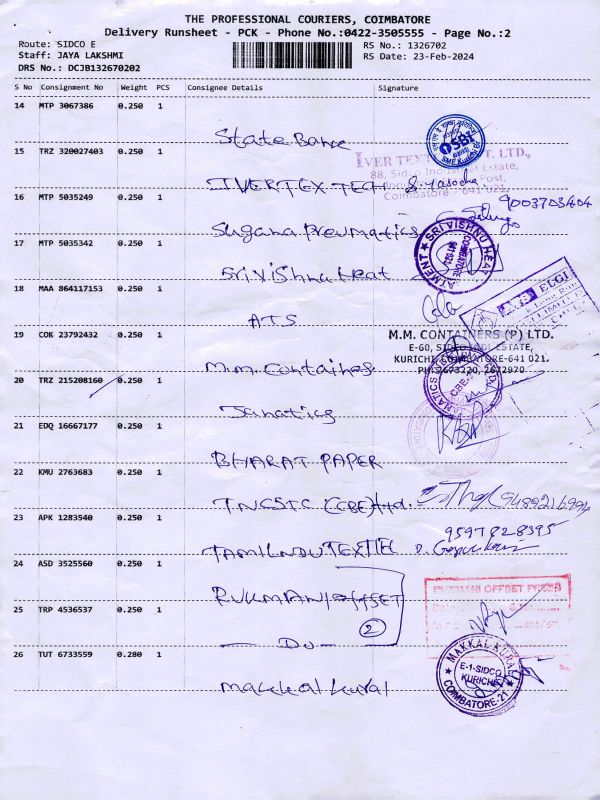 THE PROFESSIONAL COURIERS, COIMBATORE
Delivery Runsheet - PCK - Phone No.:0422-3505555 - Page No.:2
Route: SIDCO E
RS No.: 1326702
Staff: JAYA LAKSHMI
RS Date: 23-Feb-2024
DRS No.: DCJB132670202
S No Consignment No Weight PCS Consignee Details Signature
14 MTP 3067386 0.250 1
State Bank
SBI
15 TRZ 320027403 0.250 1
IVERTEX TECH
88, Sidco Industrial Estate,
Post,
Coimbatore - 641 021.
16 MTP 5035249 0.250 1
9003703404
Suguna Pneumatics
17 MTP 5035342 0.250 1
Sri Vishnu Heat
SRI VISHNU HEAT
18 MAA 864117153 0.250 1
ATS
ELGI
19 COK 23792432 0.250 1
M.M. CONTAINERS (P) LTD.
E-60, SIDCO IND. ESTATE,
KURICHI, COIMBATORE-641 021.
M.M. Containes.
20 TRZ 215208160 0.250 1
Janatics
21 EDQ 16667177 0.250 1
BHARAT PAPER
22 KMU 2763683 0.250 1
TNCSTC (CBE) Ltd.
23 APK 1283540 0.250 1
9597828395
TAMILNDU TEXTIL
24 ASD 3525560 0.250 1
RUKMANI OFFSET
RUKMANI OFFSET PRESS
2
25 TRP 4536537 0.250 1
Do
26 TUT 6733559 0.280 1
Makkal kural
MAKKAL KURAL
E-1-SIDCO
KURICHI
COIMBATORE-21